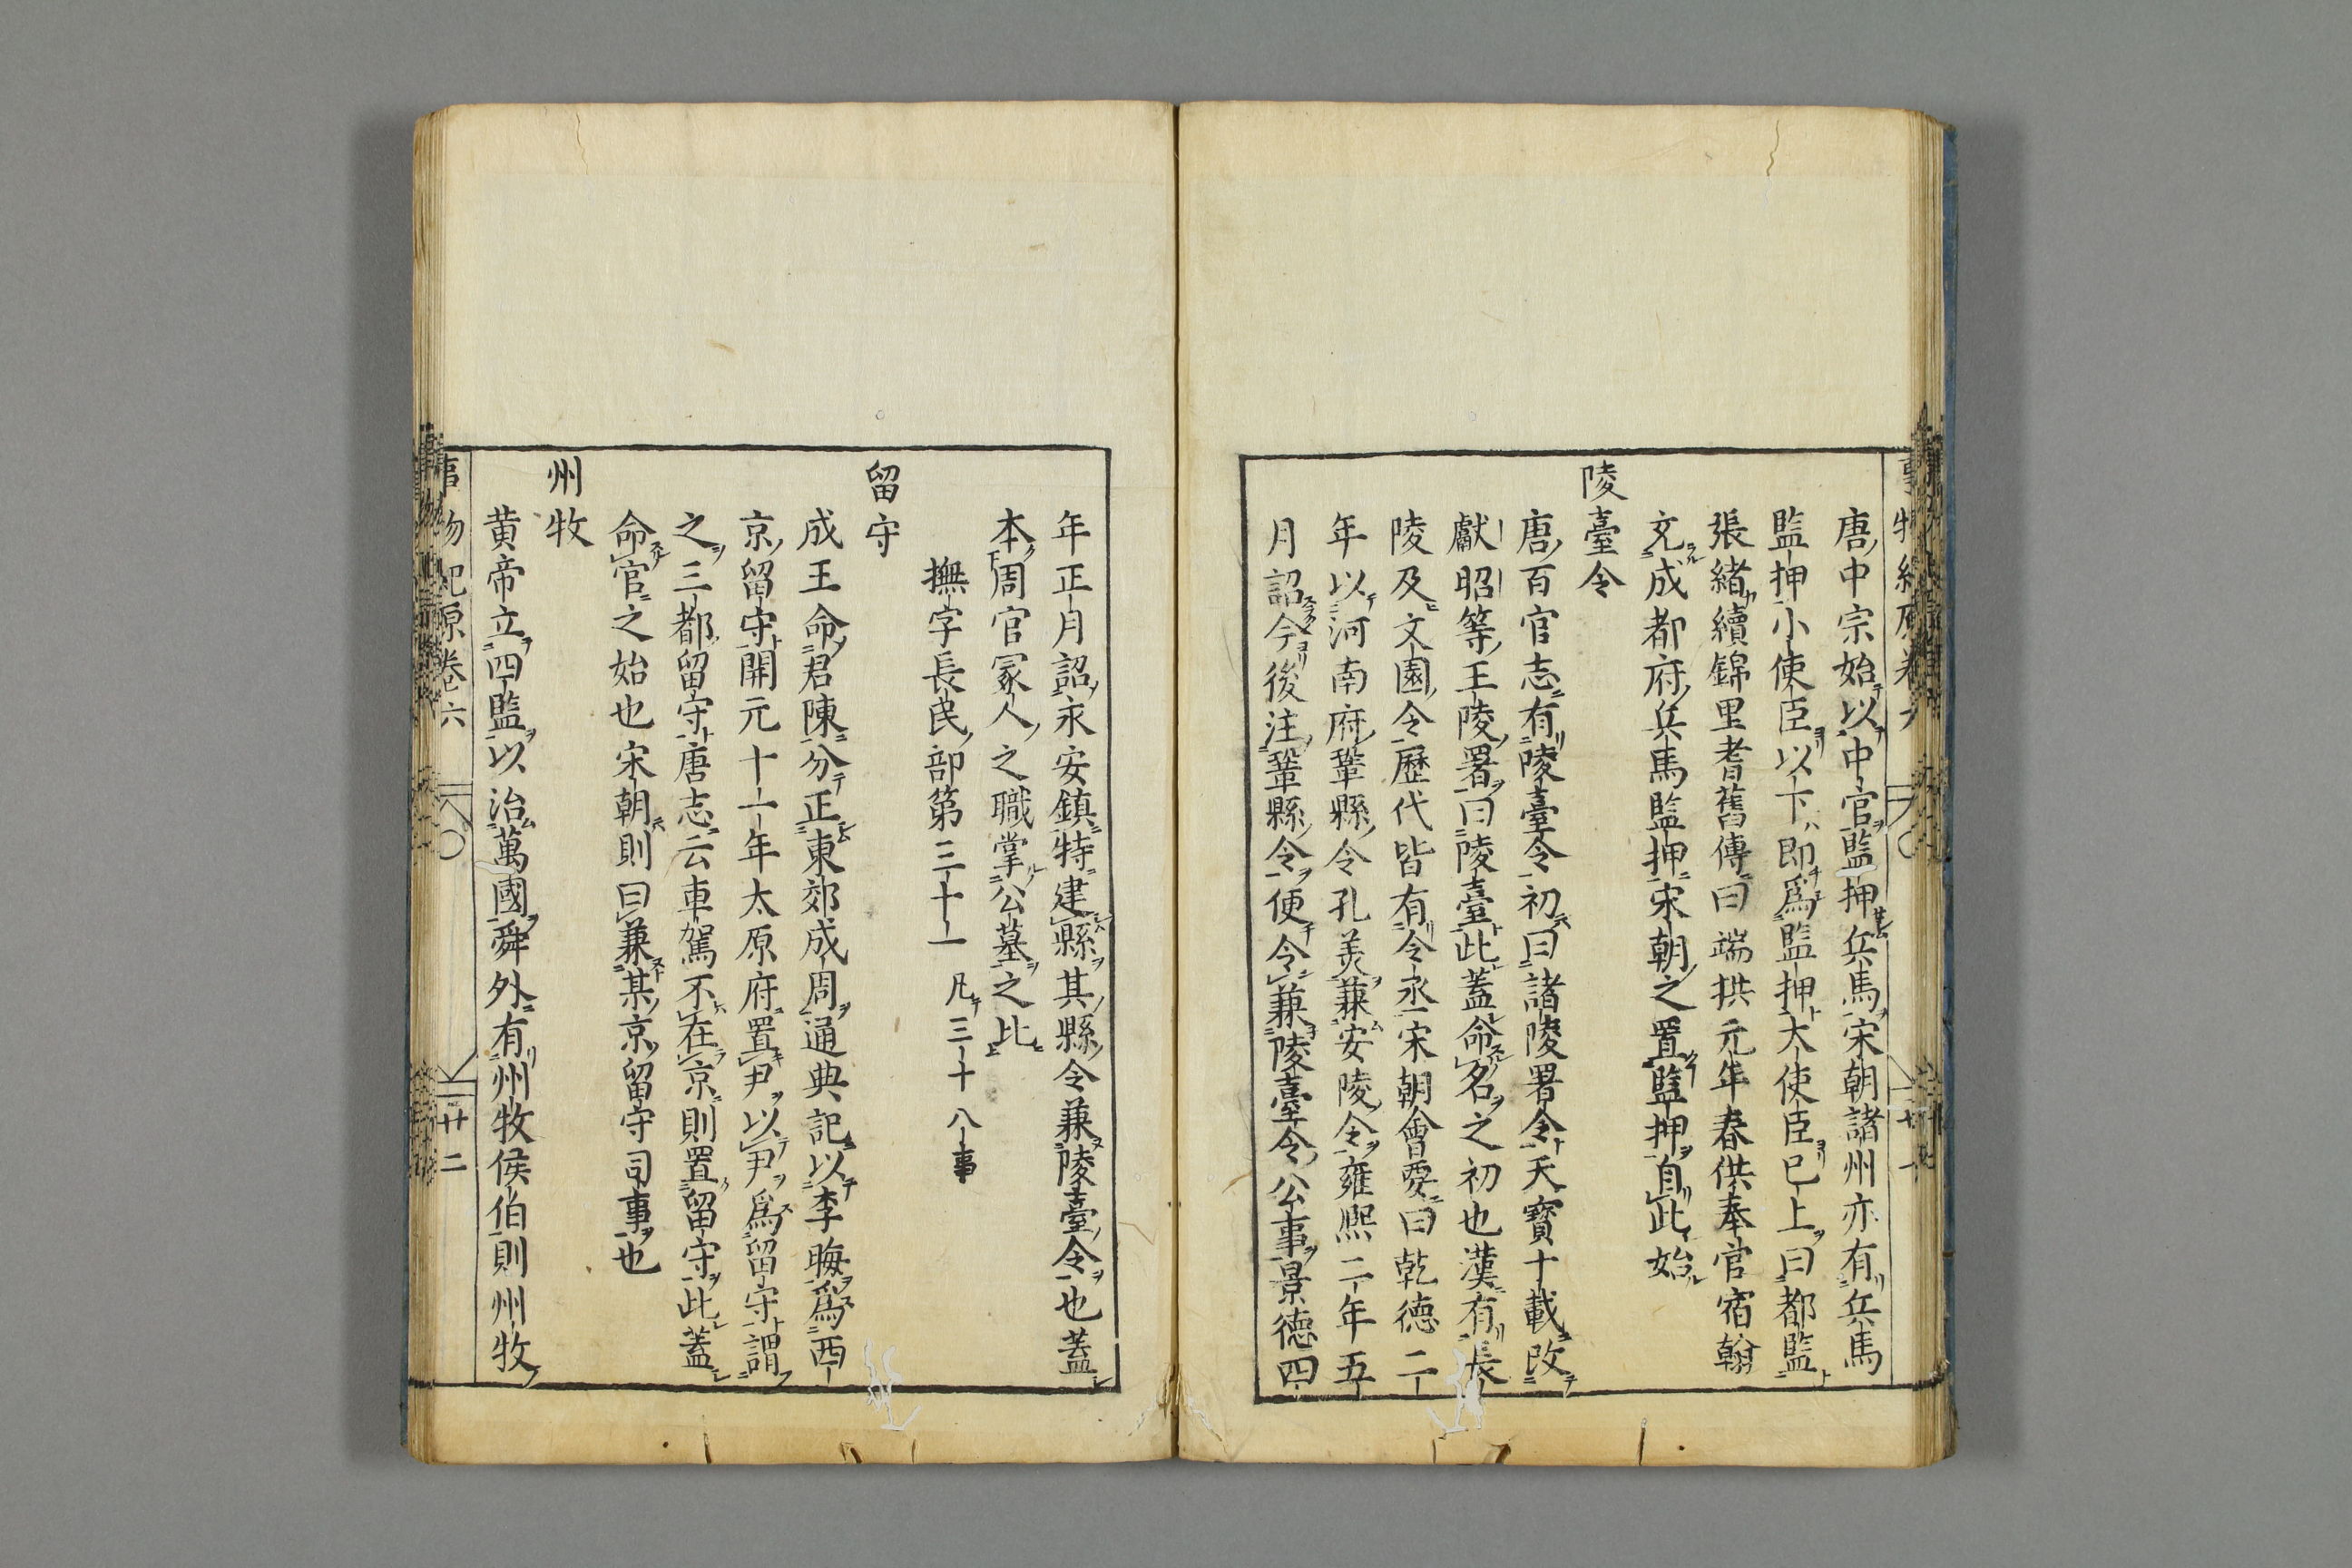 唐中宗始以中官監押兵馬宋朝諸州亦有兵馬
監押小使臣以下即爲監押大使臣已上曰都監
張緒續錦里耆舊傳曰端拱元年春供奉官宿翰
充成都府兵馬監押宋朝之置監押自此始
陵臺令
唐百官志有陵臺令初曰諸陵署令天寶十載改
獻昭等王陵署曰陵臺此蓋命名之初也漢有長
陵及文園令歷代皆有令丞宋朝會要曰乾德二
年以河南府鞏縣令孔美兼安陵令雍熙二年五
月詔今後注鞏縣令便令兼陵臺令公事景德四
年正月詔永安鎮特建縣其縣令兼陵臺令也蓋
本周官冢人之職掌公墓之比
撫字長民部第三十一 凡三十八事
留守
成王命君陳分正東郊成周通典記以李晦爲西
京留守開元十一年太原府置尹以尹爲留守謂
之三都留守唐志云車駕不在京則置留守此蓋
命官之始也宋朝則曰兼某京留守司事也
州牧
黄帝立四監以治萬國舜外有州牧侯伯則州牧
事物紀原卷六
廿二